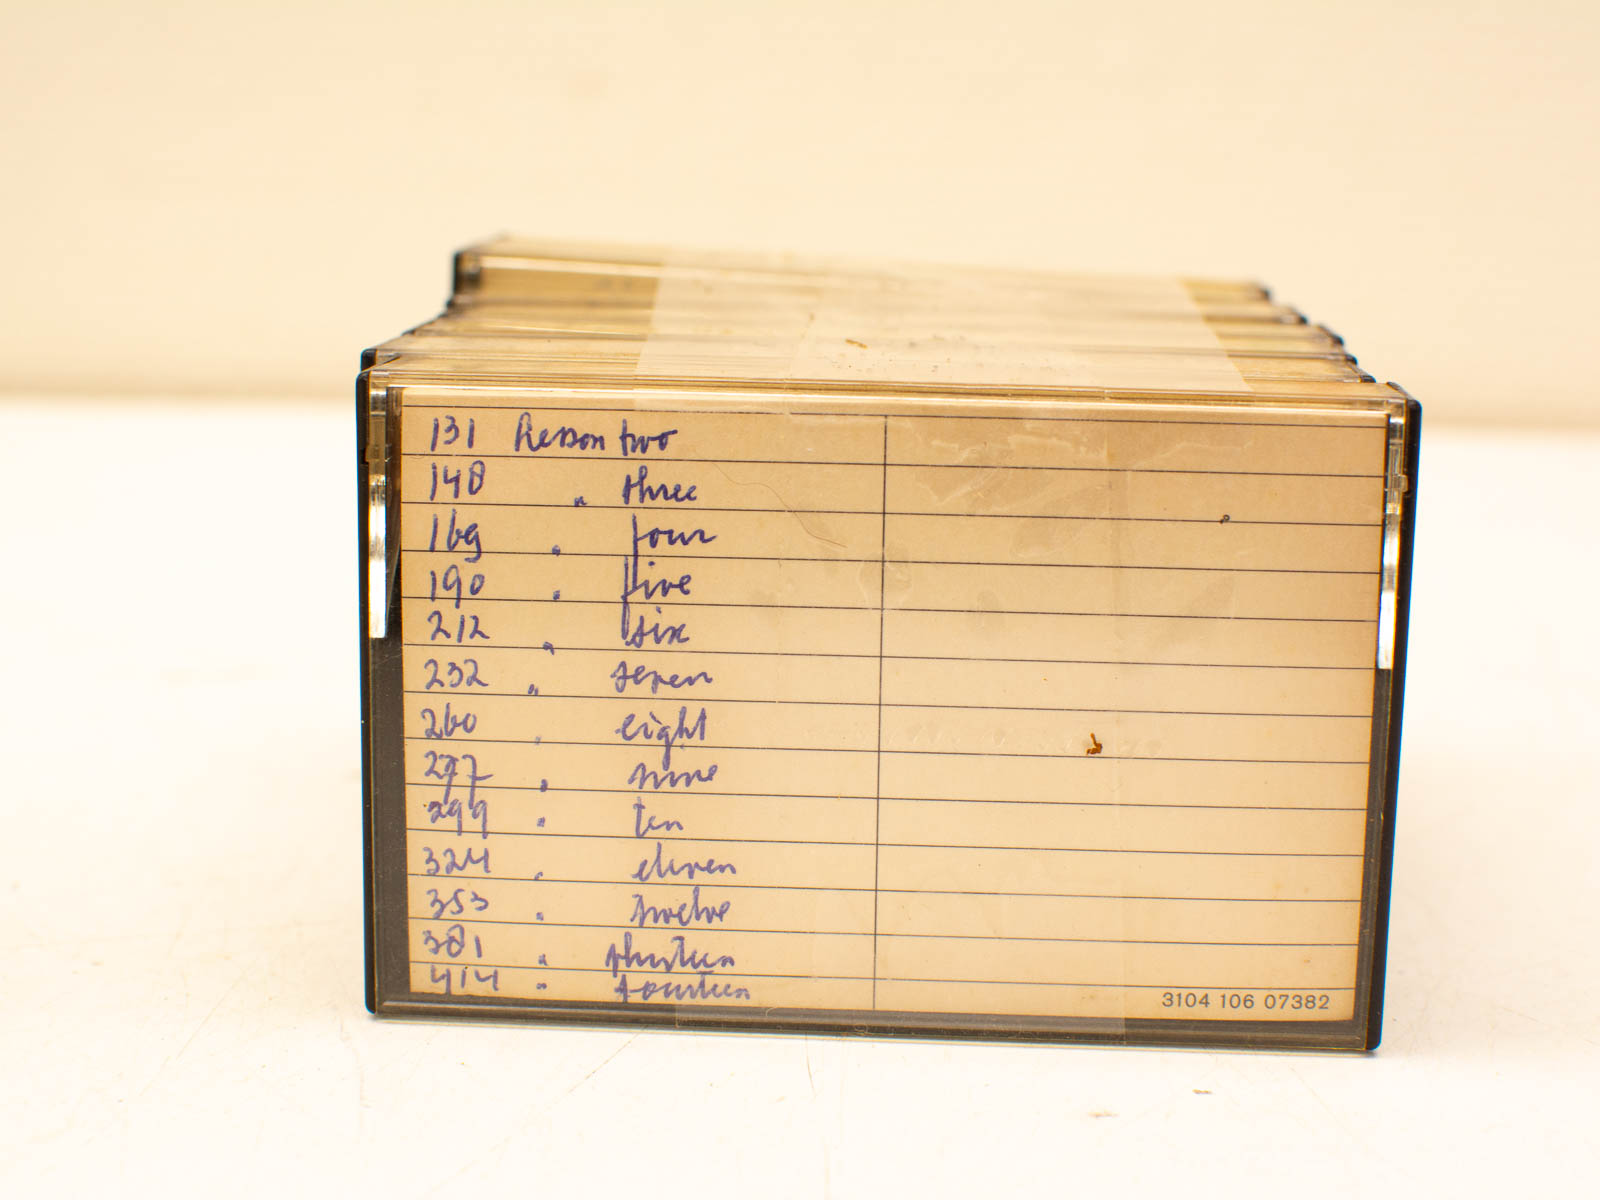 131 Lesson two
148 " three
169 " four
190 " five
212 " six
232 " seven
260 " eight
277 " nine
299 " ten
324 " eleven
353 " twelve
381 " thirteen
414 " fourteen
3104 106 07382